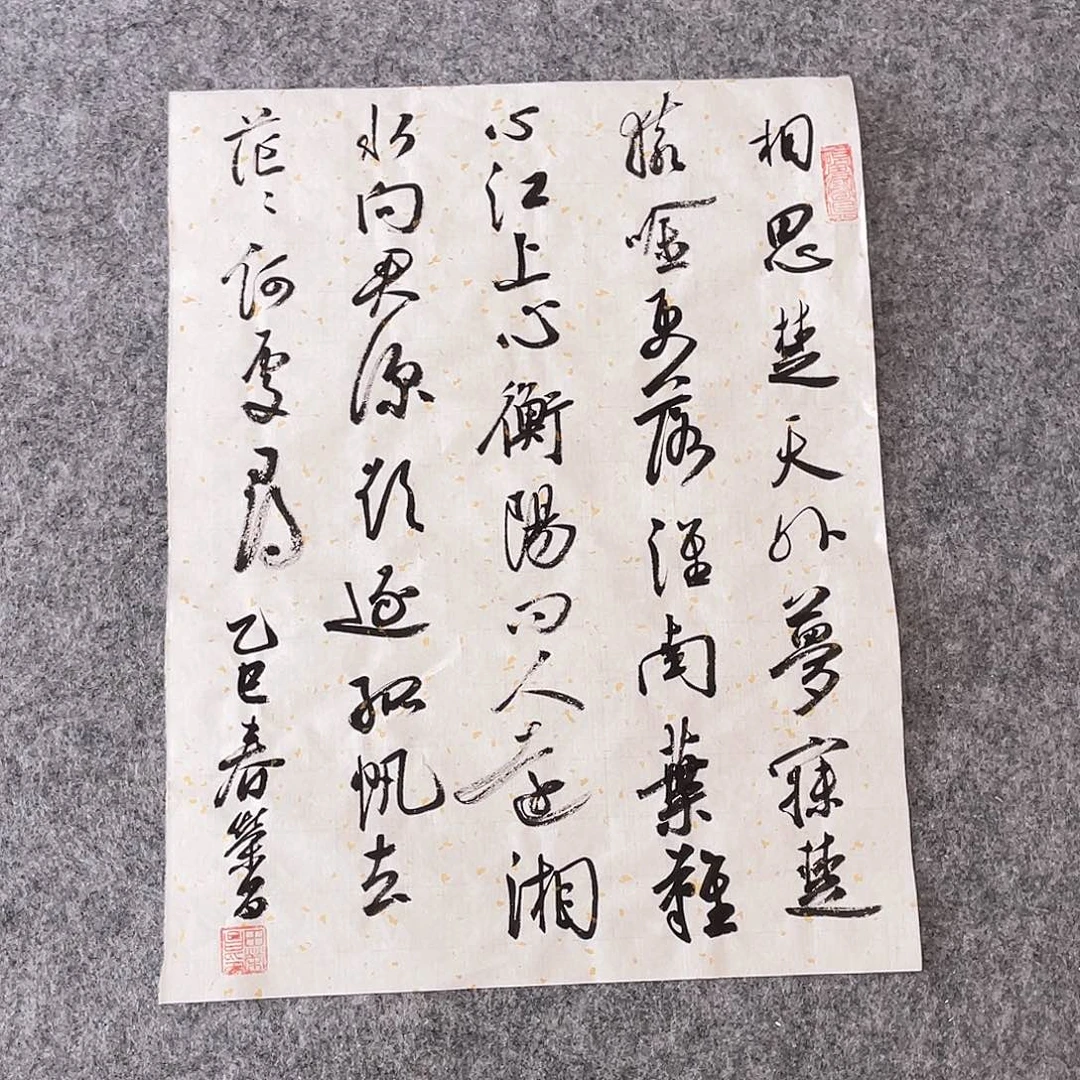 相思楚天外夢寐楚
猿吟更落淮南葉難
為江上心衡陽問人遠湘
水向君深欲逐孤帆去
茫〻何處尋 乙巳春榮